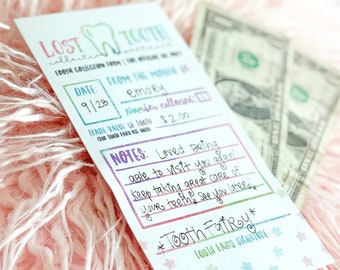 LOST TOOTH!
TOOTH COLLECTION FORM | FOR OFFICIAL USE ONLY
DATE: 9/28
FROM THE MOUTH OF
emory
Number collected: 1
TRADE VALUE OF TOOTH $2.00
NOTES: Loved Being
able to visit you again!
Keep taking great care of
your teeth. See you later,
*Tooth Fairy*
TOOTH FAIRY SIGNATURE